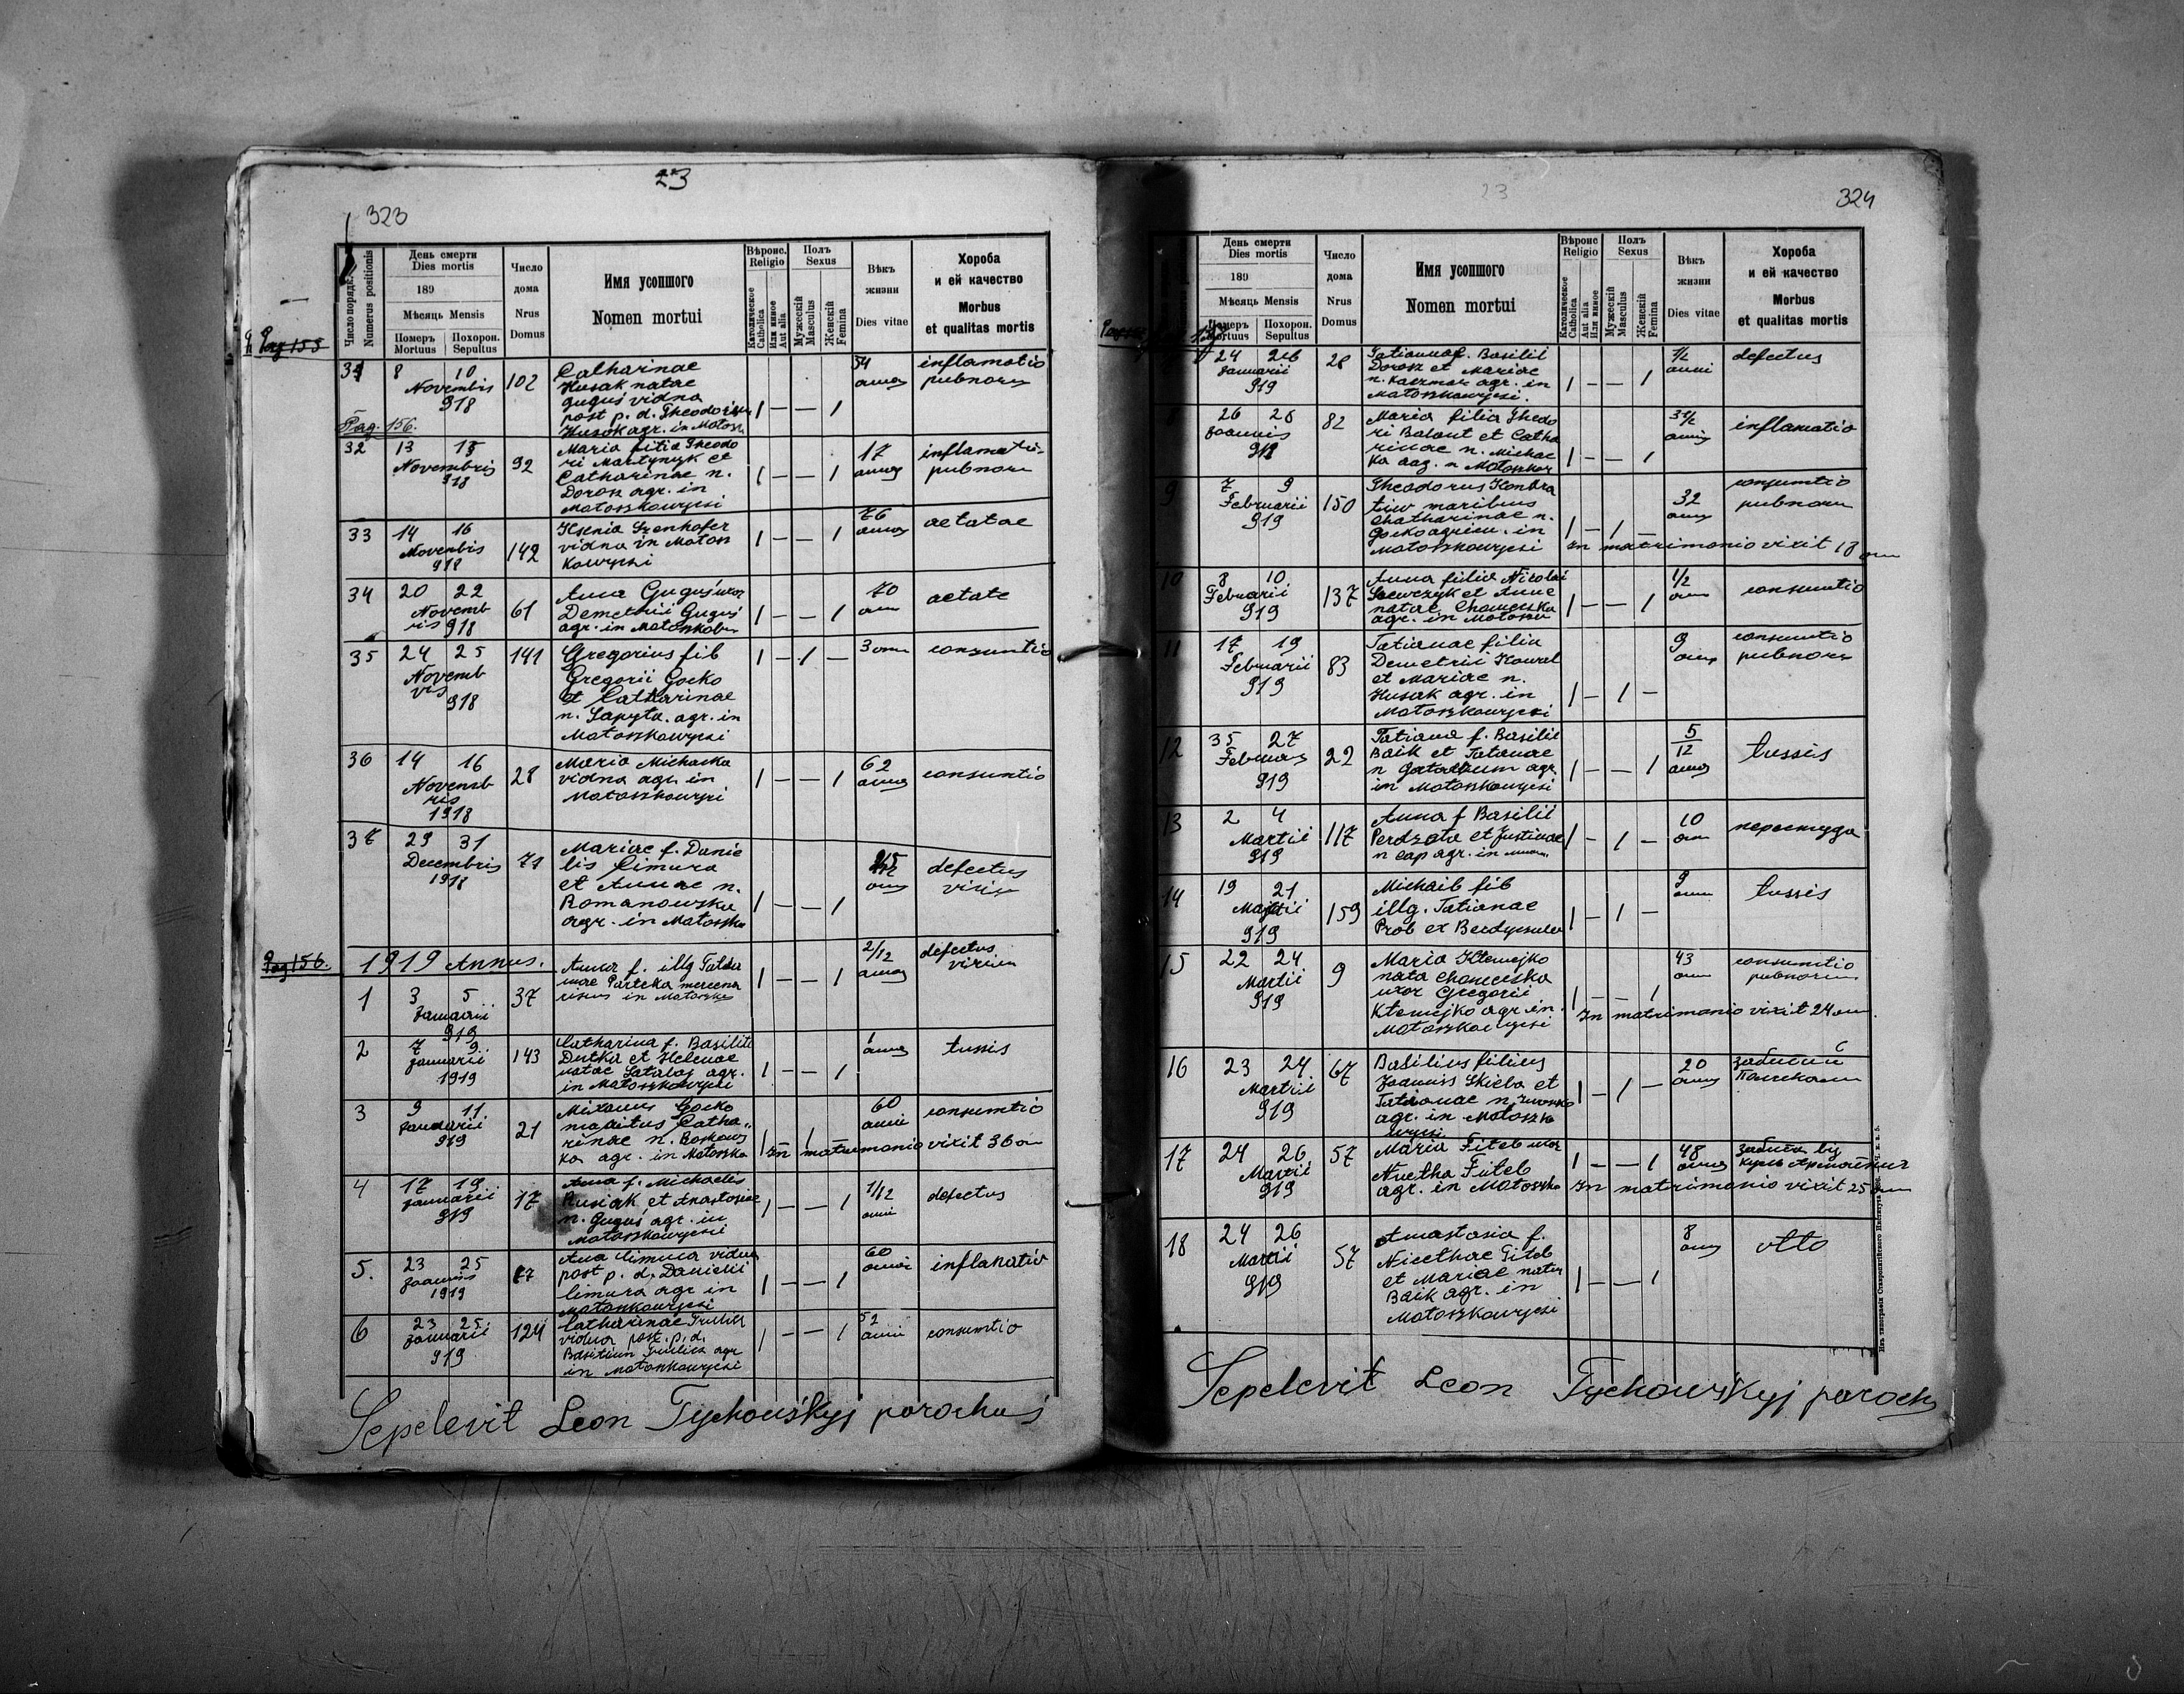 23
323
Число порядк.
Numerus positionis
День смерти
Dies mortis
189
Мѣсяць Mensis
Номеръ
Mortuus
Похорон.
Sepultus
Число
дома
Nrus
Domus
Имя усопшого
Nomen mortui
Вѣроис.
Religio
Католическое
Catholica
Или иное
Aut alia
Полъ
Sexus
Мужескій
Masculus
Женскій
Femina
Вѣкъ
жизни
Dies vitae
Хороба
и ей качество
Morbus
et qualitas mortis
Pag 155
31 8 10 Novembris 918 102
Catharinae
Husak natae
Guguś vidna
post p. d. Theodorum
Husak agr. in Matosz
1 — — 1 54 annos inflamatio
pulmonum
Pag. 156.
32 13 15 Novembris 918 92
Maria filia Theodo
ri Martynyk et
Catharinae n.
Dorosz agr. in
Matoszkowycsi
1 — — 1 17 annos inflamatio
pulmonum
33 14 16 Novembris 918 142
Ksenia Szenhofer
vidna in Matosz
kowycsi
1 — — 1 76 annos aetatae
34 20 22 Novemb
ris 918 61
Anna Guguś uxor
Demetrii Guguś
agr. in Matoszkow
1 — — 1 70 ann aetate
35 24 25 Novemb
ris 918 141
Gregorius fil
Gregorii Gocko
et Catharinae
n. Sapyta. agr. in
Matoszkowycsi
1 — 1 — 3 ann consuntio
36 14 16 Novemb
ris 1918 28
Maria Michaska
vidna agr. in
Matoszkowyci
1 — — 1 62 annos consuntio
37 29 31 Decembris 1918 71
Mariae f. Danie
lis Cimura
et Annae n.
Romanowska
agr. in Matoszko
1 — — 1 ann defectus
virium
Pag 156.
1919 Annus.
1 3 5 Januarii 919 37
Anna f. illg Tatia
nae Parteka mercena
rius in Matoszko
1 — — 1 2/12 annos defectus
virium
2 7 9 Januarii 1919 143
Catharina f. Basilii
Dutka et Helenae
natae Sataloj agr.
in Matoszkowycsi
1 — — 1 1 annos tussis
3 9 11 Januarii 919 21
Gocko
maritus Catha
rinae n. Roskows
ka agr. in Matoszko
1 — 1 60 anni consumtio
In matrimonio vixit 36 an
4 17 19 Januarii 919 17
Anna f. Michaelis
Rusiak et Anastasiae
n. Guguś agr. in
Matoszkowycsi
1 — — 1 1/12 anni defectus
5. 23 25 Joannis 1919 77
Ana Cimura vidua
post p. d. Danielii
Cimura agr in
Matoszkowycsi
1 — — 1 60 annos inflamatio
6 23 25 Januarii 919 124
Catharinae
vidua post. p. d.
Basilium agr
in Matoszkowycsi
1 — — 1 52 anni consumtio
Sepelevit Leon Tychowśkyj parochus
23
324
День смерти
Dies mortis
189
Мѣсяць Mensis
Номеръ
Mortuus
Похорон.
Sepultus
Число
дома
Nrus
Domus
Имя усопшого
Nomen mortui
Вѣроис
Religio
Католическое
Catholica
Или иное
Aut alia
Полъ
Sexus
Мужескій
Masculus
Женскій
Femina
Вѣкъ
жизни
Dies vitae
Хороба
и ей качество
Morbus
et qualitas mortis
24 26 Januarii 919 28
Tatianna f. Basilii
Dorosz et Mariae
n. Kaczmar agr. in
Matoszkowycsi.
1 — — 1 1/2 anni defectus
8 26 28 Joannis 919 82
Maria filia Theodo
ri Balant et Catha
rinae n. Michas
ka agr. n Matoszkow
1 — — 1 3 1/2 annos inflamatio
9 7 9 Februarii 919 150
Theodorus Kondra
tiw maritus
Chatharinae n.
Gocko agricu. in
Matoszkowycsi
1 — 1 — 32 annos consumtio
pulmonum
In matrimonio vixit 13 ann
10 8 10 Februarii 919 137
Anna filia Nicolai
Szewczyk et Anne
natae Chomycska
agr. in Matoszko
1 — — 1 1/2 ann consuntio
11 17 19 Februarii 919 83
Tatianae filia
Demetrii Kowal
et Mariae n.
Husak agr. in
Matoszkowycsi
1 — 1 — 9 annos consuntio
pulmonum
12 35 27 Februar 919 22
Tatiana f. Basilii
Baik et Tatianae
n agr.
in Matoszkowycsi
1 — — 1 5/12 annos tussis
13 2 4 Martii 919 117
Anna f Basilii
Perdzata et Justinae
n Cap agr. in
1 — 1 — 10 ann перестуда
14 19 21 Martii 919 159
Michail fil
illg. Tatianae
Prob ex
1 — 1 — 9 ann tussis
15 22 24 Martii 919 9
Maria Klemejko
nata Chomycska
uxor Gregorii
Klemejko agr in.
Matoszkowycsi
1 — — 1 43 ann consumtio
pulmonum
In matrimonio vixit 24 ann.
16 23 24 Martii 919 67
Basilius filius
Joannis Skiba et
Tatianae n
agr. in Matoszko
wycsi
1 — 1 — 20 annos забитий
Поляками
17 24 26 Martii 919 57
Maria Fitel uxor
Nicetha Fitel
agr. in Matoszko
1 — — 1 48 annos забита від
In matrimonio vixit 25 ann
18 24 26 Martii 919 57
Anastasia f.
Nicethae Fitel
et Mariae natae
Baik agr. in
Matoszkowycsi
1 — — 1 8 annos otto
Sepelevit Leon Tychowśkyj paroch